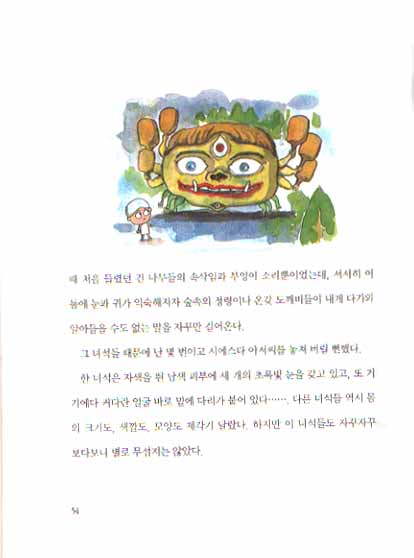 때 처음 들렸던 건 나무들의 속삭임과 부엉이 소리뿐이었는데, 서서히 어
둠에 눈과 귀가 익숙해지자 숲속의 정령이나 온갖 도깨비들이 내게 다가와
알아들을 수도 없는 말을 자꾸만 걸어온다.
그 녀석들 때문에 난 몇 번이고 시에스타 아저씨를 놓쳐 버릴 뻔했다.
한 녀석은 자색을 띤 남색 피부에 세 개의 초록빛 눈을 갖고 있고, 또 거
기에다 커다란 얼굴 바로 밑에 다리가 붙어 있다……. 다른 녀석들 역시 몸
의 크기도, 색깔도, 모양도 제각기 달랐다. 하지만 이 녀석들도 자꾸자꾸
보다보니 별로 무섭지는 않았다.
54